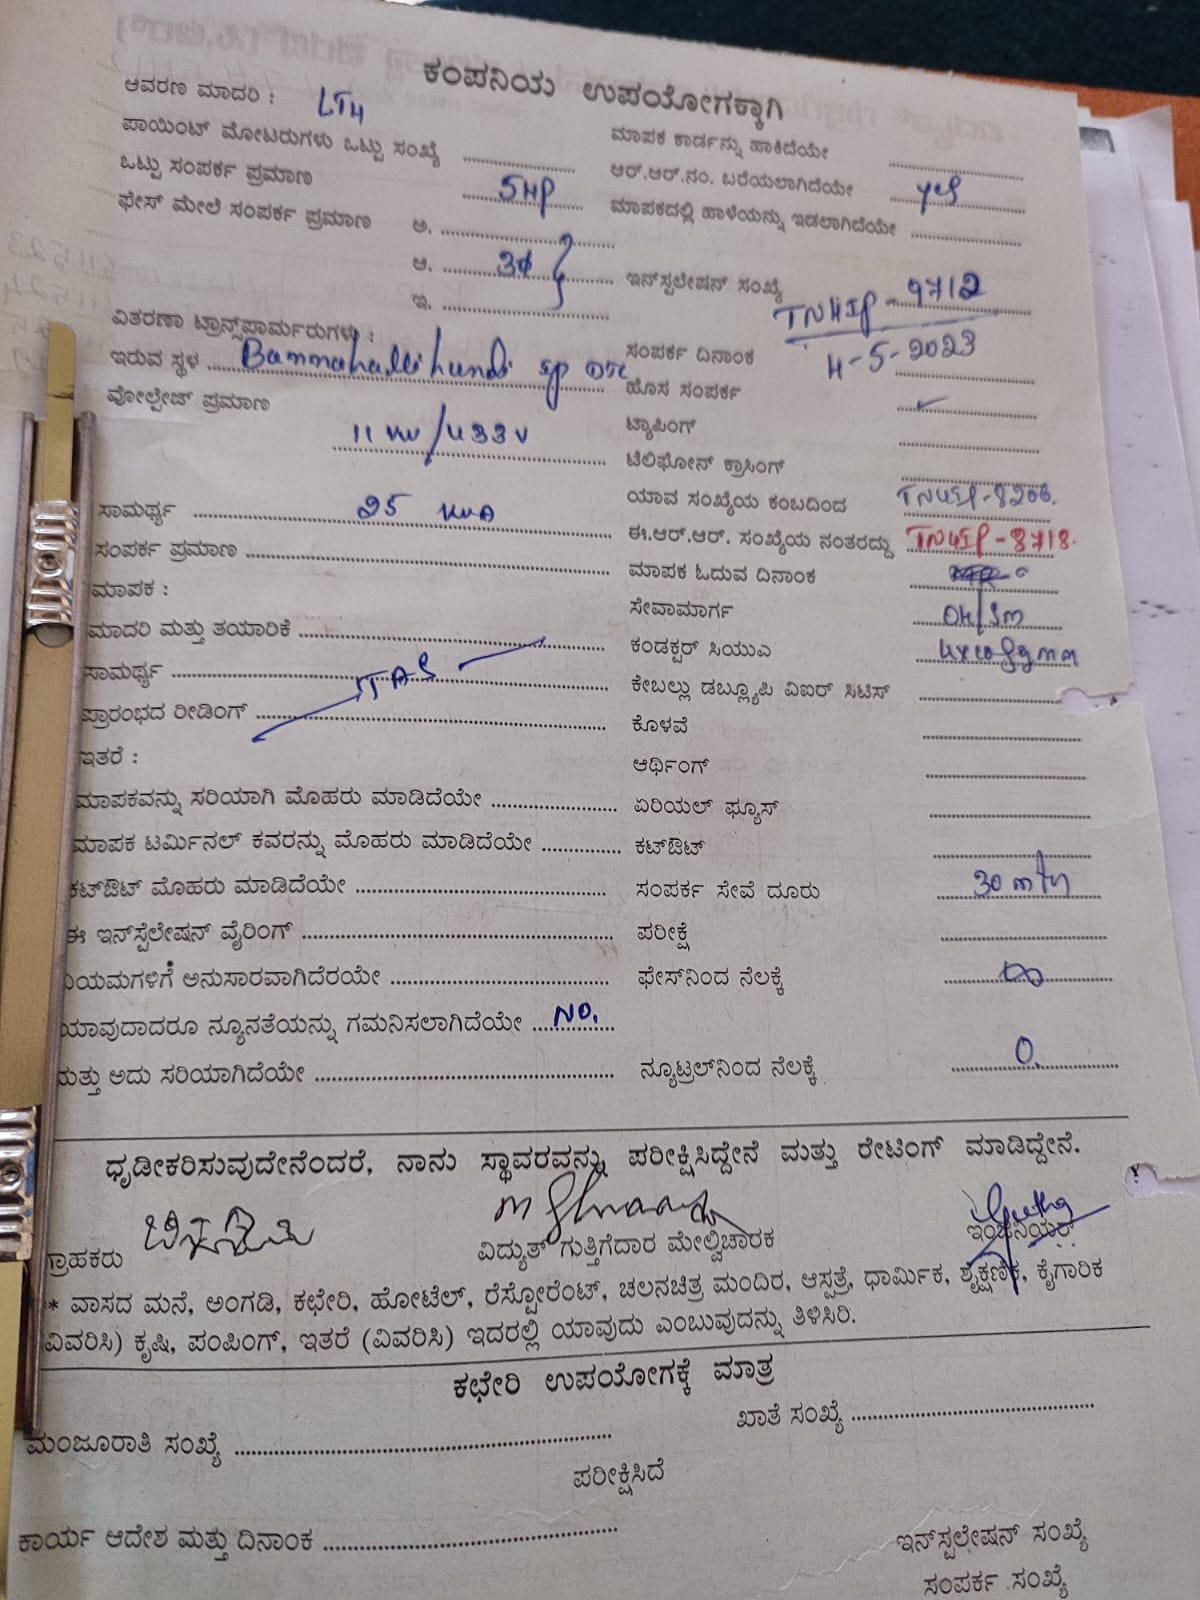 ಕಂಪನಿಯ ಉಪಯೋಗಕ್ಕಾಗಿ
ಆವರಣ ಮಾದರಿ : LT4
ಪಾಯಿಂಟ್ ಮೋಟರುಗಳು ಒಟ್ಟು ಸಂಖ್ಯೆ ..........
ಒಟ್ಟು ಸಂಪರ್ಕ ಪ್ರಮಾಣ 5HP
ಫೇಸ್ ಮೇಲೆ ಸಂಪರ್ಕ ಪ್ರಮಾಣ ಅ. ..........
ಆ. 3ϕ
ಇ. ..........
ವಿತರಣಾ ಟ್ರಾನ್ಸ್‌ಫಾರ್ಮರುಗಳು :
ಇರುವ ಸ್ಥಳ Bammahallihundi
ವೋಲ್ಟೇಜ್ ಪ್ರಮಾಣ
11 kv/433v
ಸಾಮರ್ಥ್ಯ 25 kva
ಸಂಪರ್ಕ ಪ್ರಮಾಣ ..........
ಮಾಪಕ :
ಮಾದರಿ ಮತ್ತು ತಯಾರಿಕೆ ..........
ಸಾಮರ್ಥ್ಯ ..........
ಪ್ರಾರಂಭದ ರೀಡಿಂಗ್ ..........
ಇತರೆ :
ಮಾಪಕವನ್ನು ಸರಿಯಾಗಿ ಮೊಹರು ಮಾಡಿದೆಯೇ ..........
ಮಾಪಕ ಟರ್ಮಿನಲ್ ಕವರನ್ನು ಮೊಹರು ಮಾಡಿದೆಯೇ ..........
ಕಟ್‌ಔಟ್ ಮೊಹರು ಮಾಡಿದೆಯೇ ..........
ಈ ಇನ್‌ಸ್ಟೆಲೇಷನ್ ವೈರಿಂಗ್ ..........
ನಿಯಮಗಳಿಗೆ ಅನುಸಾರವಾಗಿದೆರಯೇ ..........
ಯಾವುದಾದರೂ ನ್ಯೂನತೆಯನ್ನು ಗಮನಿಸಲಾಗಿದೆಯೇ NO.
ಮತ್ತು ಅದು ಸರಿಯಾಗಿದೆಯೇ ..........
ಮಾಪಕ ಕಾರ್ಡನ್ನು ಹಾಕಿದೆಯೇ ..........
ಆರ್.ಆರ್.ನಂ. ಬರೆಯಲಾಗಿದೆಯೇ yes
ಮಾಪಕದಲ್ಲಿ ಹಾಳೆಯನ್ನು ಇಡಲಾಗಿದೆಯೇ ..........
ಇನ್‌ಸ್ಟಲೇಷನ್ ಸಂಖ್ಯೆ TN4IP-9712
ಸಂಪರ್ಕ ದಿನಾಂಕ 4-5-2023
ಹೊಸ ಸಂಪರ್ಕ ✓
ಟ್ಯಾಪಿಂಗ್ ..........
ಟೆಲಿಫೋನ್ ಕ್ರಾಸಿಂಗ್
ಯಾವ ಸಂಖ್ಯೆಯ ಕಂಬದಿಂದ TN4IP-8206.
ಈ.ಆರ್.ಆರ್. ಸಂಖ್ಯೆಯ ನಂತರದ್ದು TN4IP-8718.
ಮಾಪಕ ಓದುವ ದಿನಾಂಕ
ಸೇವಾಮಾರ್ಗ OH/Sm
ಕಂಡಕ್ಟರ್ ಸಿಯುಎ
ಕೇಬಲ್ಲು ಡಬ್ಲ್ಯೂಪಿ ವಿಐರ್ ಸಿಟಿಸ್ ..........
ಕೊಳವೆ ..........
ಆರ್ಥಿಂಗ್ ..........
ಏರಿಯಲ್ ಫ್ಯೂಸ್ ..........
ಕಟ್‌ಔಟ್ ..........
ಸಂಪರ್ಕ ಸೇವೆ ದೂರು
ಪರೀಕ್ಷೆ ..........
ಫೇಸ್‌ನಿಂದ ನೆಲಕ್ಕೆ ∞
ನ್ಯೂಟ್ರಲ್‌ನಿಂದ ನೆಲಕ್ಕೆ 0.
ಧೃಡೀಕರಿಸುವುದೇನೆಂದರೆ, ನಾನು ಸ್ಥಾವರವನ್ನು ಪರೀಕ್ಷಿಸಿದ್ದೇನೆ ಮತ್ತು ರೇಟಿಂಗ್ ಮಾಡಿದ್ದೇನೆ.
ಗ್ರಾಹಕರು ವಿದ್ಯುತ್ ಗುತ್ತಿಗೆದಾರ ಮೇಲ್ವಿಚಾರಕ ಇಂಜಿನಿಯರ್
* ವಾಸದ ಮನೆ, ಅಂಗಡಿ, ಕಛೇರಿ, ಹೋಟೆಲ್, ರೆಸ್ಟೋರೆಂಟ್, ಚಲನಚಿತ್ರ ಮಂದಿರ, ಆಸ್ಪತ್ರೆ, ಧಾರ್ಮಿಕ, ಶೈಕ್ಷಣಿಕ, ಕೈಗಾರಿಕ
(ವಿವರಿಸಿ) ಕೃಷಿ, ಪಂಪಿಂಗ್, ಇತರೆ (ವಿವರಿಸಿ) ಇದರಲ್ಲಿ ಯಾವುದು ಎಂಬುವುದನ್ನು ತಿಳಿಸಿರಿ.
ಕಛೇರಿ ಉಪಯೋಗಕ್ಕೆ ಮಾತ್ರ
ಮಂಜೂರಾತಿ ಸಂಖ್ಯೆ .......... ಖಾತೆ ಸಂಖ್ಯೆ ..........
ಪರೀಕ್ಷಿಸಿದೆ
ಕಾರ್ಯ ಆದೇಶ ಮತ್ತು ದಿನಾಂಕ .......... ಇನ್‌ಸ್ಟಲೇಷನ್ ಸಂಖ್ಯೆ
ಸಂಪರ್ಕ ಸಂಖ್ಯೆ